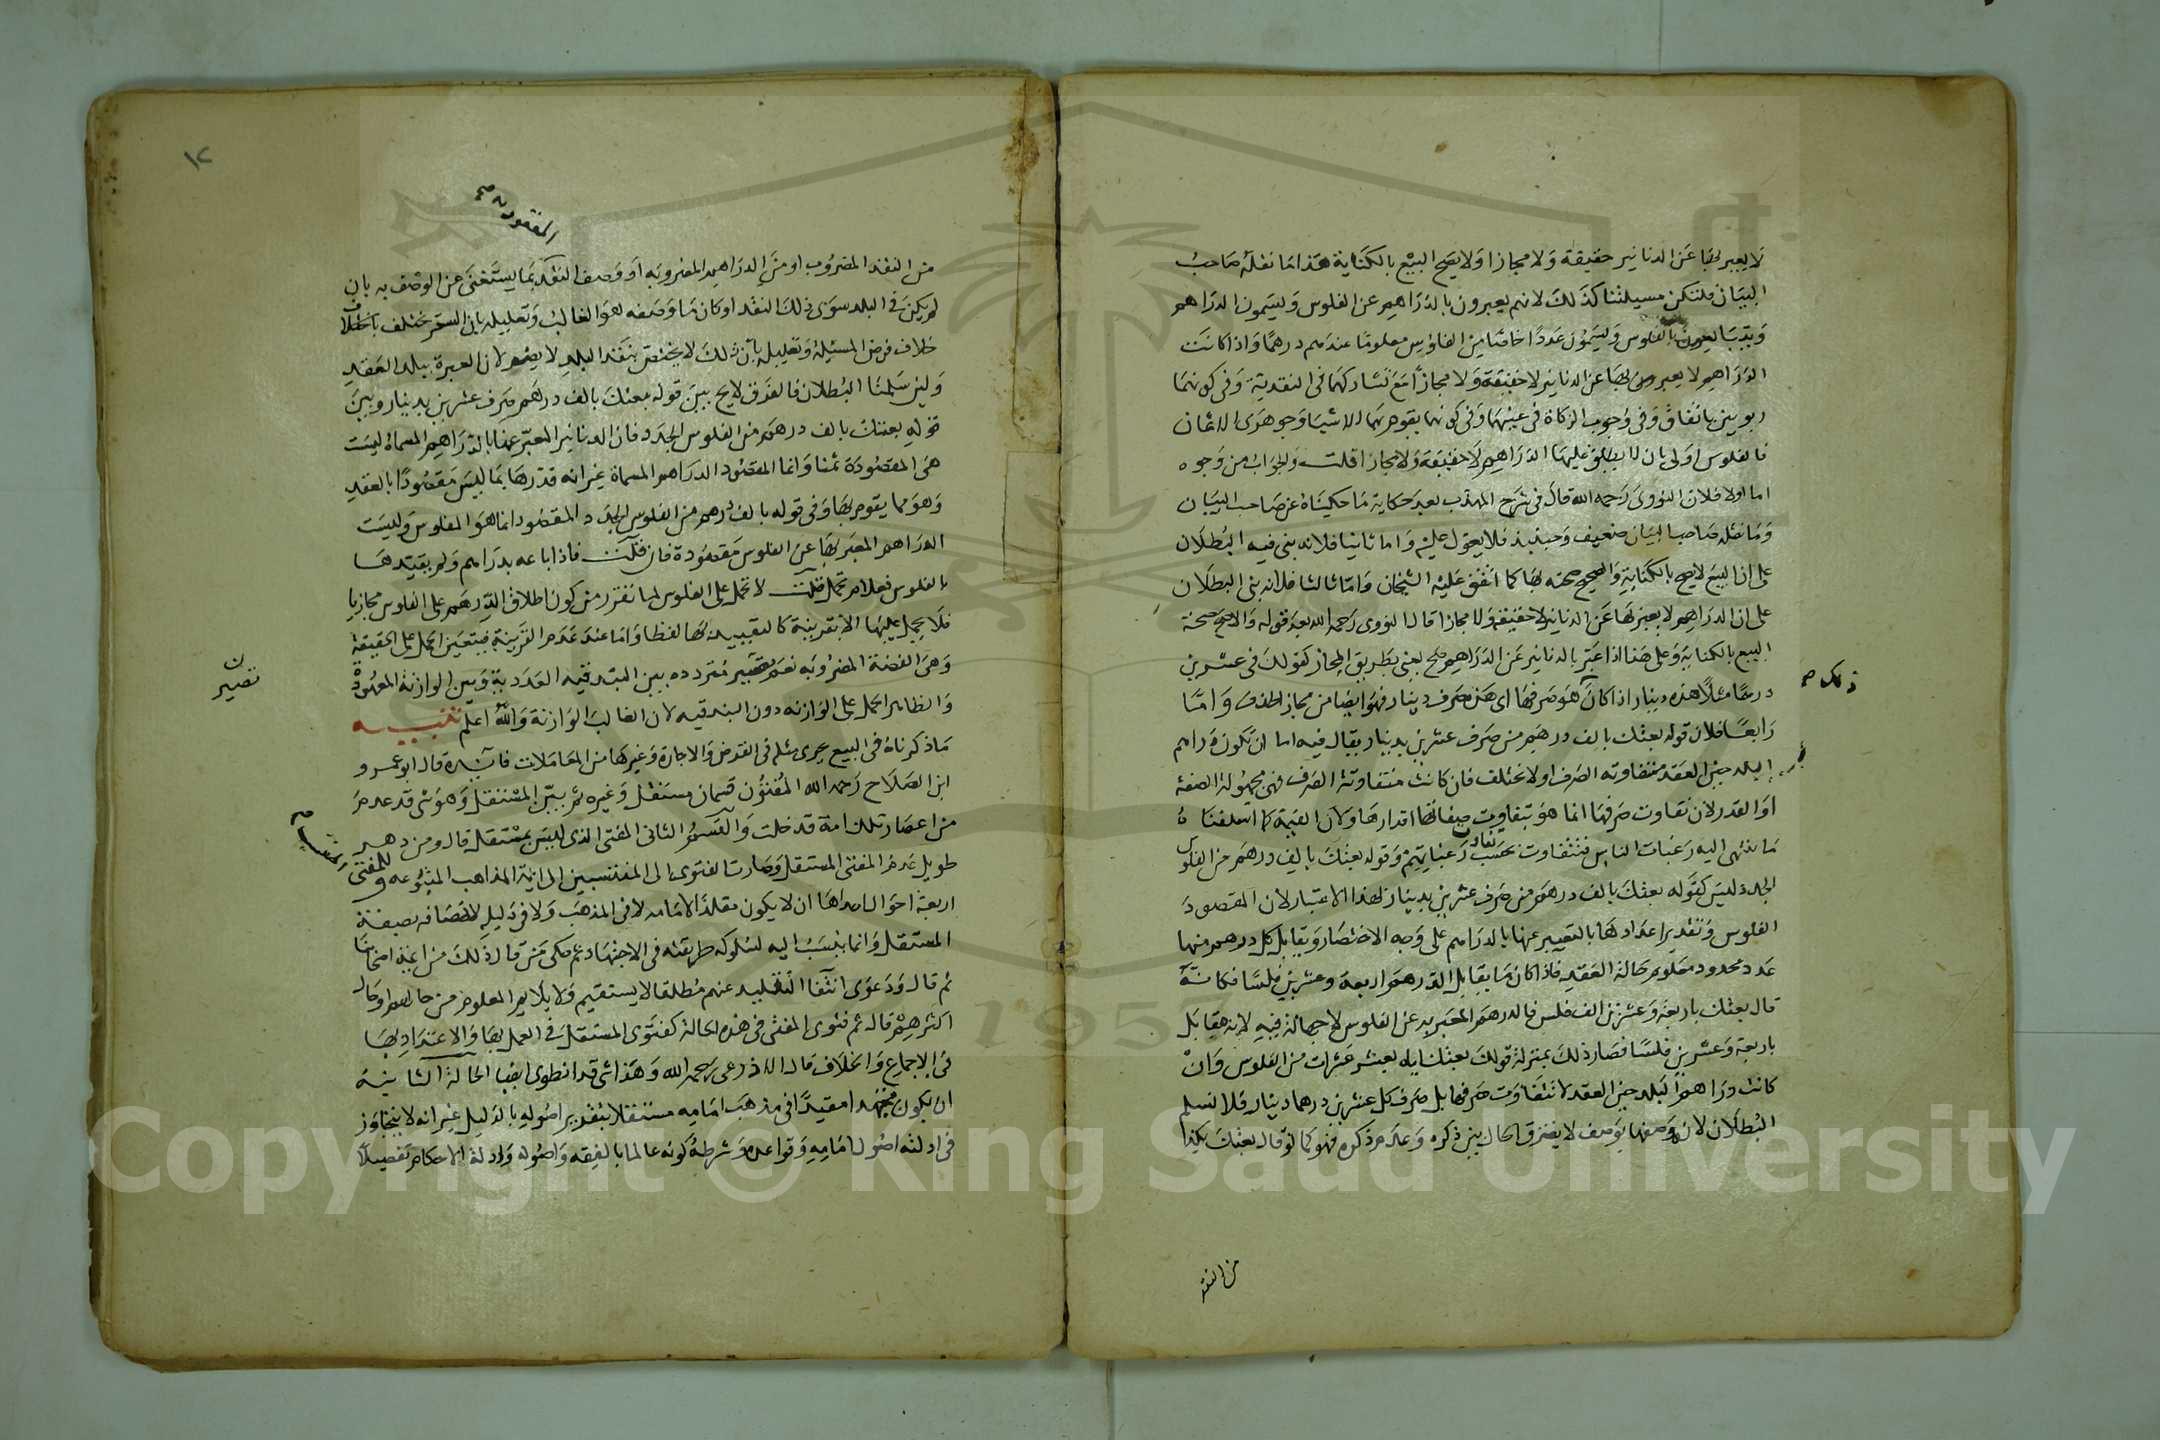 لا يعبر بها عن الدنانير حقيقة ولا مجازا ولا يصح البيع بالكناية هذا ما نقله صاحب
البيان فلتكن مسيلتنا كذلك لانهم يعبرون بالدراهم عن الفلوس ويسمون الدراهم
بالفلوس ويسمون عددا خاصا من الفلوس معلوما عندهم درهما واذا كانت
الدراهم لا يعبر بها عن الدنانير لا حقيقة ولا مجازا مع تشاركهما في النقدية وفي كونهما
ربويين باتفاق وفي وجوب الزكاة في عينهما وفي كونهما يقوم بهما الاشيا وجوهري الاثمان
فالفلوس اولى بان لا يطلق عليها الدراهم لا حقيقة ولا مجازا قلت والجواب من وجوه
اما اولا فلان النووي رحمه الله قال في شرح المهذب بعد حكاية ما حكيناه عن صاحب البيان
وما نقله صاحب البيان ضعيف وحينيذ فلا يعول عليه واما ثانيا فلانه بنى فيه البطلان
على ان البيع لا يصح بالكناية والصحيح صحته بها كما اتفق عليه الشيخان واما ثالثا فلانه بنى البطلان
على ان الدراهم لا يعبر بها عن الدنانير لا حقيقة ولا مجازا قال النووي رحمه الله بعد قوله والاصح صحة
البيع بالكناية وعلى هذا اذا عبر بالدنانير عن الدراهم صح يعني بطريق المجاز كقولك في عشرين
ذلك صح
درهما مثلا هذه دينار اذا كان هو صرفها اي هذه صرف دينار فهو ايضا من مجاز الحذف واما
رابعا فلان قوله بعتك بالف درهم من صرف عشرين بدينار يقال فيه اما ان تكون دراهم
البلد حين العقد متفاوته الصرف او لا تختلف فان كانت متفاوتة الصرف فهي مجهولة الصفة
او القدر لان تفاوت صرفها انما هو بتفاوت صفاتها اقدارها ولان القيمة كما اسلفناه
ما تنتهي اليه رغبات الناس فتتفاوت بحسب تفاوت رغباتهم وقوله بعتك بالف درهم من الفلوس
الجدد ليس كقوله بعتك بالف درهم من صرف عشرين بدينار لهذا الاعتبار لان المقصود
الفلوس وتقدير اعدادها بالتعبير عنها بالدراهم على وجه الاختصار ويقابل كل درهم منها
عدد محدود معلوم حالة العقد فاذا كان ما يقابل الدرهم اربعة وعشرين فلسا فكانه
قال بعتك باربعة وعشرين الف فلس فالدرهم المعبر به عن الفلوس لا جهالة فيه لانه مقابل
باربعة وعشرين فلسا فصار ذلك بمنزلة قولك بعتك اياه بعشر عشرات من الفلوس وان
كانت دراهم البلد حين العقد لا تتفاوت صرفها بل صرف كل عشرين درهما دينار فلا نسلم
البطلان لان وصفها بوصف لا يفترق الحال بين ذكره وعدم ذكره فهو كما لو قال بعتك بكذا
من النقد
١٢
المفقود صح
من النقد المضروب او من الدراهم المضروبه او وصف النقد بما يستغنى عن الوصف به بان
لم يكن في البلد سوى ذلك النقد او كان ما وصفه هو الغالب وتعليله بان السعر مختلف باختلاف
خلاف فرض المسيلة وتعليله بان ذلك لا يختص بنقد البلد لا يضر لان العبرة ببلد العقد
ولين سلمنا البطلان فالفرق لايح بين قوله بعتك بالف درهم صرف عشرين بدينار وبين
قوله بعتك بالف درهم من الفلوس الجدد فان الدنانير المعبر عنها بالدراهم المسماة ليست
هي المقصودة ثمنا وانما المقصود الدراهم المسماة غير انه قدرها بما ليس مقصودا بالعقد
وهو مما يقوم بها وفي قوله بالف درهم من الفلوس الجدد المقصود انما هو الفلوس وليست
الدراهم المعبر بها عن الفلوس مقصودة فان قلت فاذا باعه بدراهم ولم يقيدها
بالفلوس فعلام تحمل قلت لا تحمل على الفلوس لما تقرر من كون اطلاق الدرهم على الفلوس مجازيا
فلا يحمل عليها الا بقرينة كالتقييد بها لفظا واما عند عدم القرينة فيتعين الحمل على الحقيقة
وهي الفضة المضروبه نعم تردده بين البندقيه العدديه وبين الوازنة المعهودة
والظاهر الحمل على الوازنه دون البندقيه لان الغالب الوازنة والله اعلم تنبيه
ما ذكرناه في البيع يجري مثله في القرض والاجارة وغيرها من المعاملات فايدة قال ابو عمرو
ابن الصلاح رحمه الله المفتون قسمان مستقل وغيره ثم بين المستقل وهو شي قد عدم
من اعصار تلك امة قد خلت والقسم الثاني المفتي الذي ليس بمستقل قال ومن دهر
طويل عدم المفتي المستقل وصارت الفتوى الى المنتسبين الى ائمة المذاهب المتبوعه وللمفتي
اربعة احوال احداها ان لا يكون مقلدا لامامه لا في المذهب ولا في دليله لاتصافه بصفة
المستقل وانما ينسب اليه لسلوكه طريقته في الاجتهاد ثم حكى من قال ذلك من ائمة اصحابنا
ثم قال ودعوى انتفا التقليد عنهم مطلقا لا يستقيم ولا يلايم المعلوم من حالهم او حال
اكثرهم قال ثم فتوى المفتي في هذه الحالة كفتوى المستقل في العمل بها والاعتداد بها
في الاجماع والخلاف قال الاذرعي رحمه الله وهذا شي قد انطوى ايضا الحالة الثانية
ان يكون مجتهدا مقيدا في مذهب امامه مستقلا بتقرير اصوله بالدليل غير انه لا يتجاوز
في ادلته اصول امامه وقواعده وشرطه كونه عالما بالفقه واصوله وادلة الاحكام تفصيلا
Copyright © King Saud University
1957